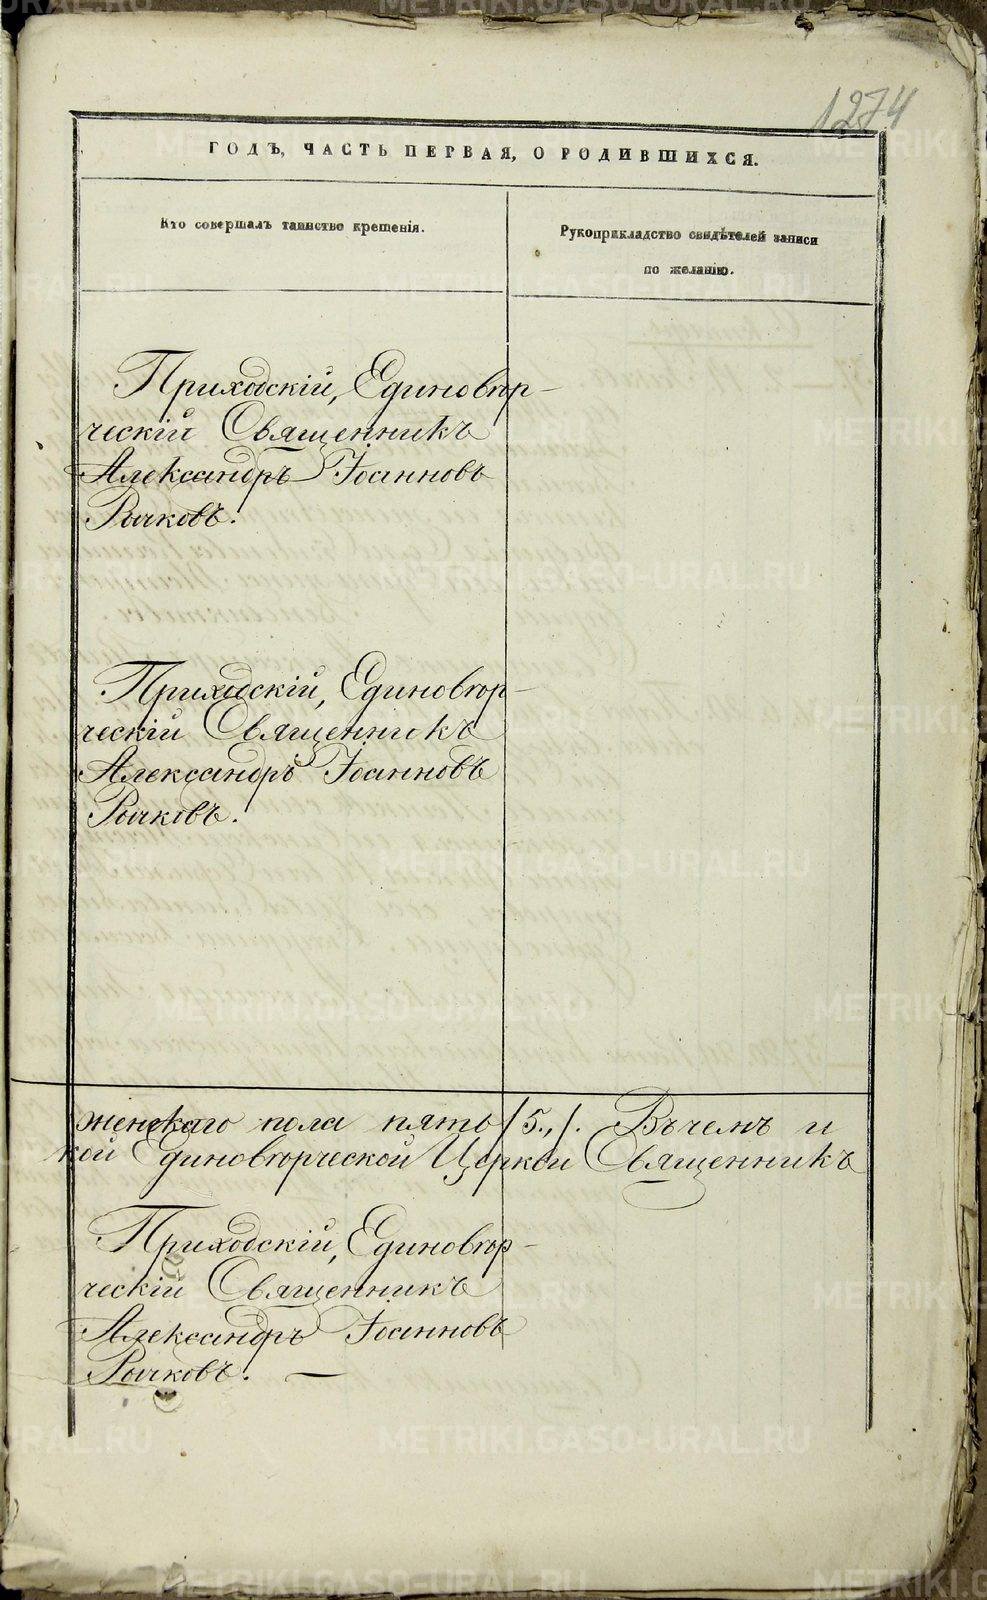 1274
ГОДЪ, ЧАСТЬ ПЕРВАЯ, О РОДИВШИХСЯ.
Кто совершалъ таинство крещенія.
Рукоприкладство свидѣтелей записи
по желанію.
Приходскій, Единовѣр-
ческій Священникъ
Александръ Іоанновъ
Рычковъ.
Приходскій, Единовѣр-
ческій Священникъ
Александръ Іоанновъ
Рычковъ.
женскаго пола пять /5.,/. Въ чемъ и
кой Единовѣрческой Церкви Священникъ
Приходскій, Единовѣр-
ческій Священникъ
Александръ Іоанновъ
Рычковъ. —
METRIKI.GASO-URAL.RU